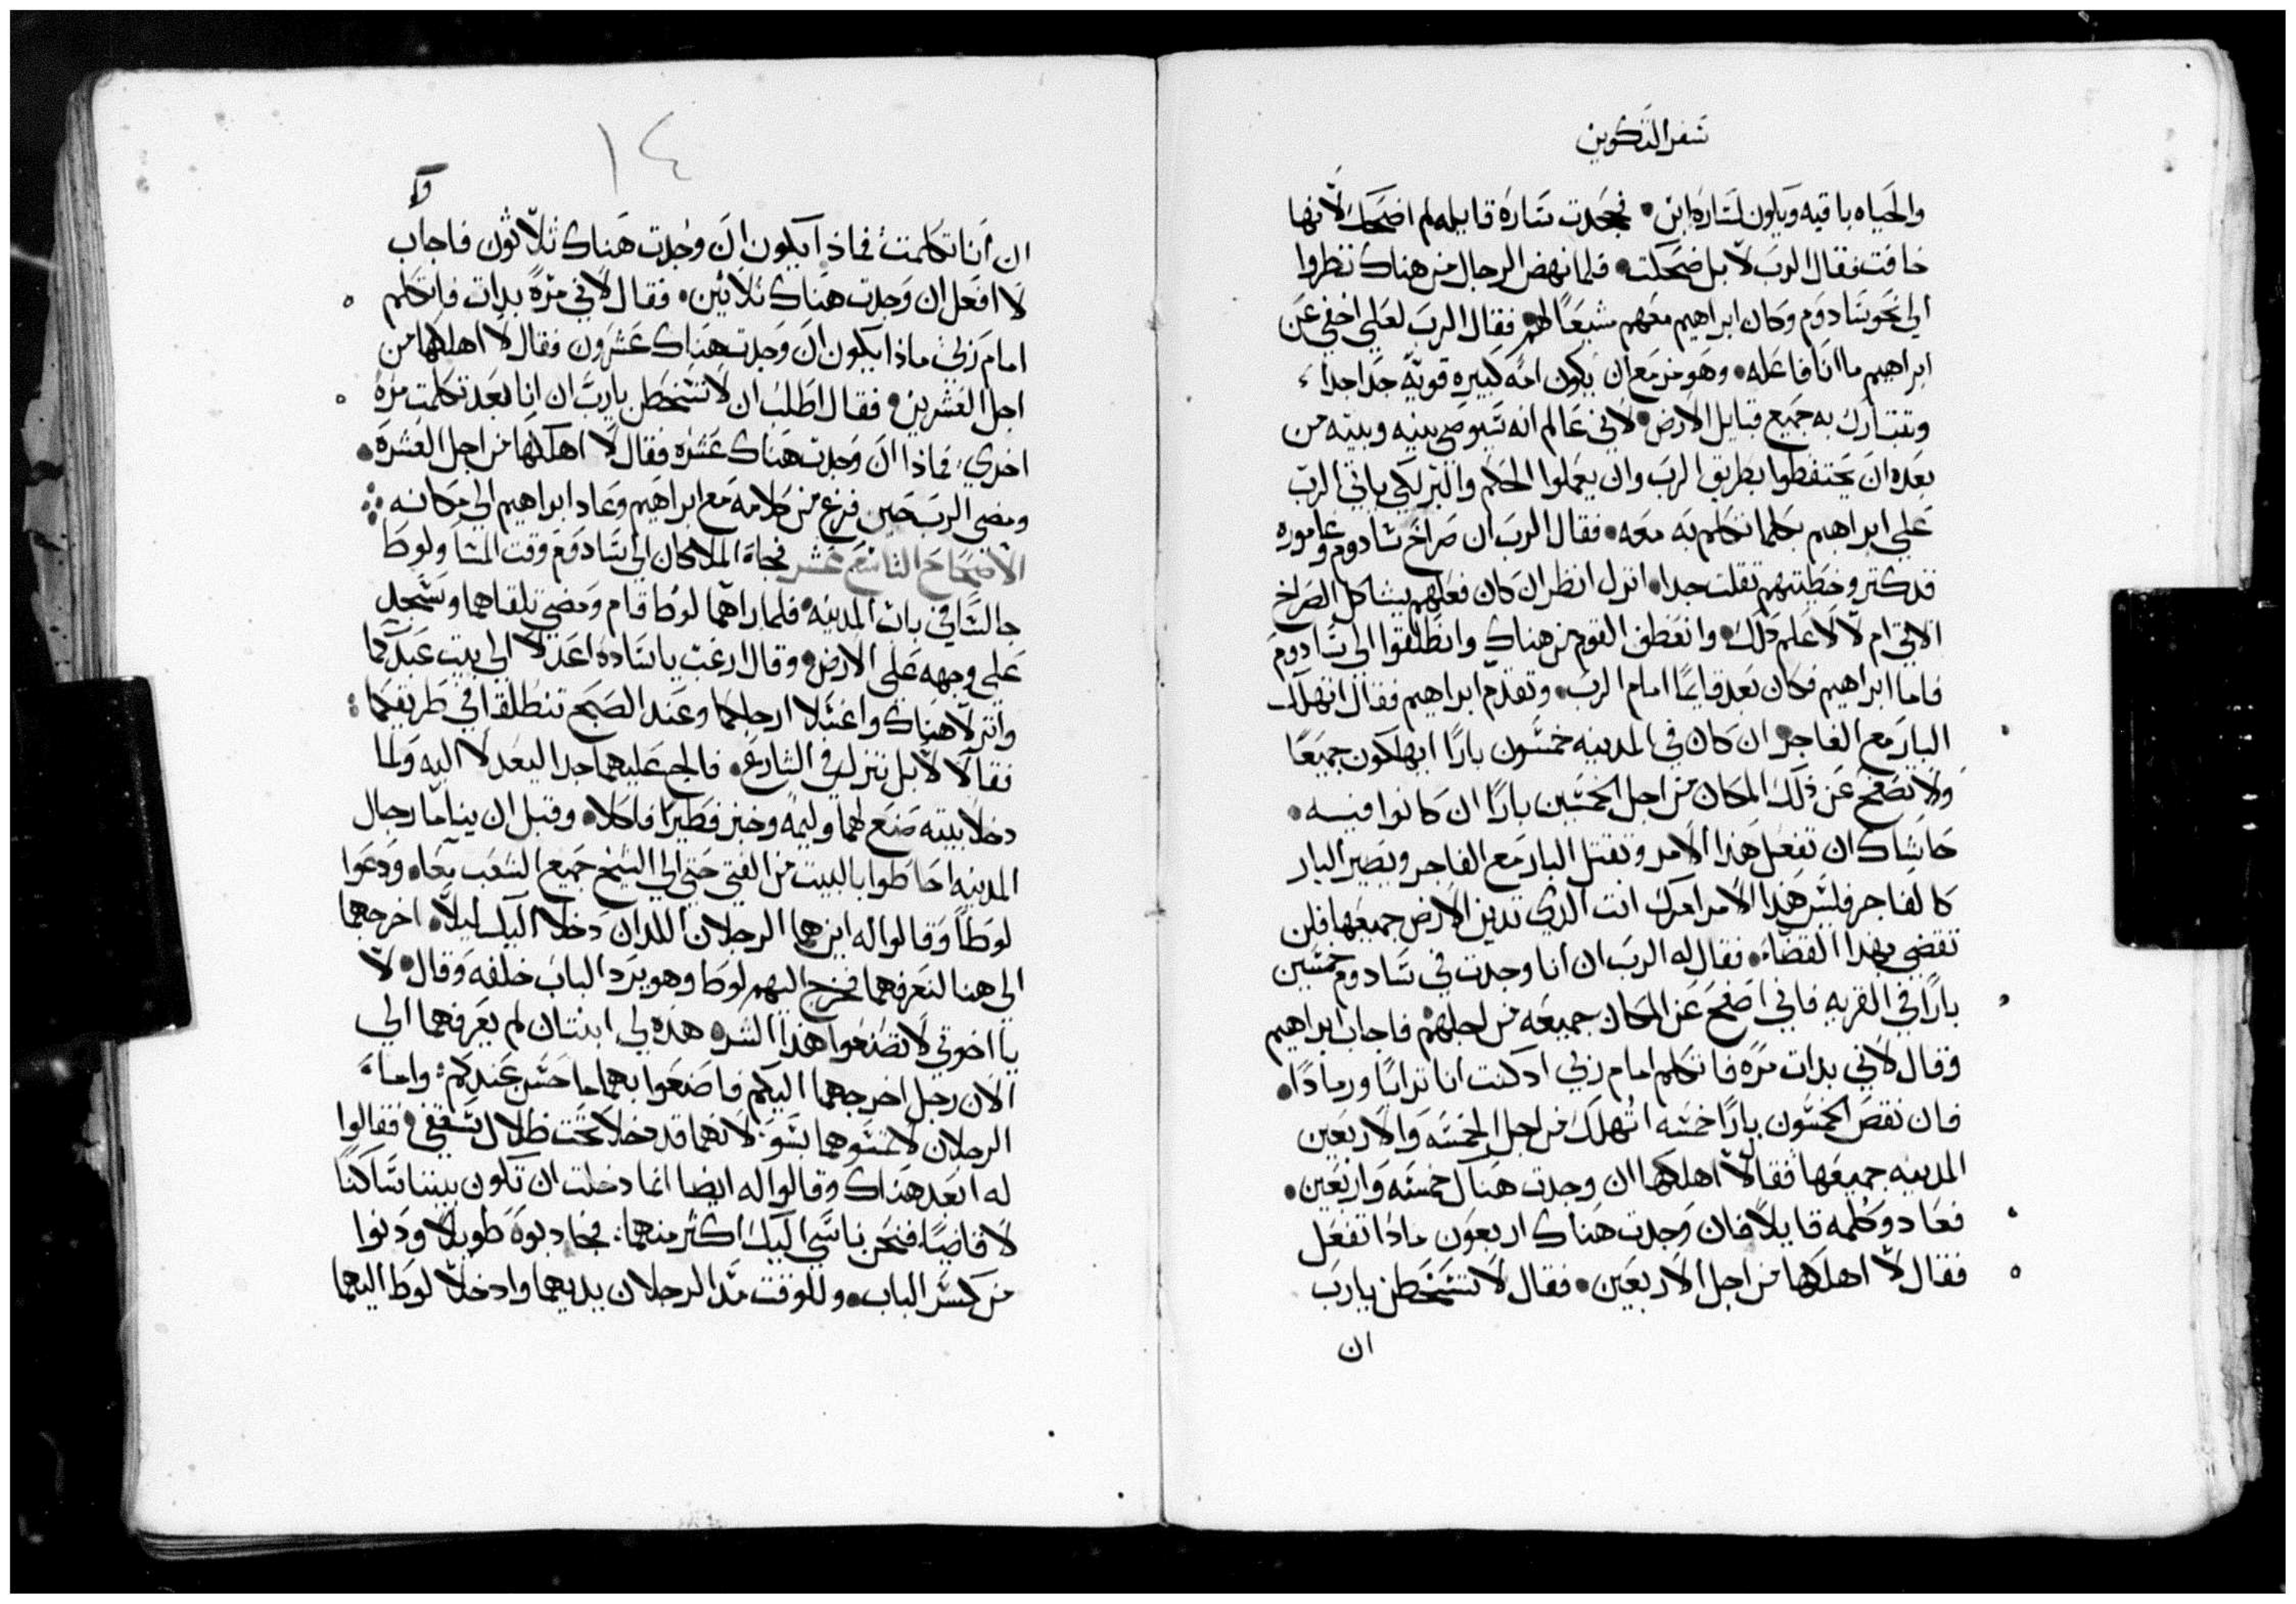 سفر التكوين
والحياه باقيه ويكون لساره ابن • فجحدت ساره قايله لم اضحك لانها
خافت فقال الرب لا بل ضحكت • فلما نهض الرجال من هناك نظروا
الي نحو سادوم وكان ابراهيم معهم مشيعًا لهم فقال الرب لعلي اخفي عن
ابراهيم ما انا فاعله • وهو مزمع ان يكون امه كبيره قويه جدا جدا
وتتبارك به جميع قبايل الارض • لاني عالم انه سيوصي بنيه وبيته من
بعده ان يحتفظوا بطريق الرب وان يعملوا الحكم والبر لكي ياتي الرب
علي ابراهيم بكلما تكلم به معه • فقال الرب ان صراخ سادوم وغاموره
قد كتر وخطيتهم تقلت جدا • انزل انظر ان كان فعلهم يشاكل الصراخ
الاتي ام لا لاعلم دلك • وانعطف القوم من هناك وانطلقوا الي سادوم
فاما ابراهيم فكان بعد قايمًا امام الرب • وتقدم ابراهيم فقال اتهلك
البار مع الفاجر ان كان في المدينه خمسون بارًا ايهلكون جميعًا
ولا تصفح عن ذلك المكان من اجل الخمسين بارًا ان كانوا فيه •
حاشاك ان تفعل هذا الامر وتقتل البار مع الفاجر ويصير البار
كالفاجر فليس هذا الامر امرك انت الذي تدين الارض جميعها فلن
تقضي بهذا القضاء • فقال له الرب ان انا وجدت في سادوم خمسين
بارًا في القريه فاني اصفح عن المكان جميعه من اجلهم فاجاب ابراهيم
وقال لاني بدات مره فاتكلم امام ربي اد كنت انا ترابًا ورمادًا •
فان نقص الخمسون بارًا خمسه اتهلك من اجل الخمسه والاربعين
المدينه جميعها فقال لا اهلكها ان وجدت هناك خمسه واربعين •
فعاد وكلمه قايلًا فان وجدت هناك اربعون ماذا تفعل
فقال لا اهلكها من اجل الاربعين • فقال لا تتسخطن يارب
ان
١٤
ان انا تكلمت فماذا يكون ان وجدت هناك ثلاثون فاجاب
لا افعل ان وجدت هناك ثلاثين • فقال لاني مرة بدات فاتكلم
امام ربي ماذا يكون ان وجدت هناك عشرون فقال لا اهلكها من
اجل العشرين • فقال اطلب ان لا تتسخطن يارب ان انا بعد تكلمت مره
اخري • فماذا ان وجدت هناك عشره فقال لا اهلكها من اجل العشره •
ومضي الرب حين فرغ من كلامه مع ابراهيم وعاد ابراهيم الي مكانه
الاصحاح التاسع عشر فجاء الملاكان الي سادوم وقت المسا ولوط
جالسًا في باب المدينه • فلما راهما لوط قام ومضي تلقاهما وسجد
علي وجهه علي الارض • وقال ارغب ياساده اعدلا الي بيت عبدكما
وانزلا هناك واغسلا ارجلكما وعند الصبح تنطلقا في طريقكما :
فقالا لا بل ننزل في الشارع • فالح عليهما جدا ليعدلا اليه ولما
دخلا بيته صنع لهما وليمه وخبز فطيرًا فاكلا • وقبل ان يناما رجال
المدينه احاطوا بالبيت من الفتي حتي الي الشيخ جميع الشعب معًا • ودعوا
لوطًا وقالوا له اين هما الرجلان اللدان دخلا اليك ليلًا • اخرجهما
الي هنا لنعرفهما فخرج اليهم لوط وهو يرد الباب خلفه وقال • لا
يا اخوتي لا تصنعوا هذا الشر • هذه لي ابنتان لم يعرفهما الي
الان رجل اخرجهما اليكم فاصنعوا بهما ما حسن عندكم : واما
الرجلان لا تمسوهما بسو • لانهما قد دخلا تحت ظلال سقفي • فقالوا
له ابعد هناك وقالوا له ايضا انما دخلت ان تكون بيننا ساكنًا
لا قاضيًا • فنحن ناسي اليك اكثر منهما : فجادبوه طويلًا ودنوا
من كسر الباب • وللوقت مدا الرجلان يديهما وادخلا لوط اليهما